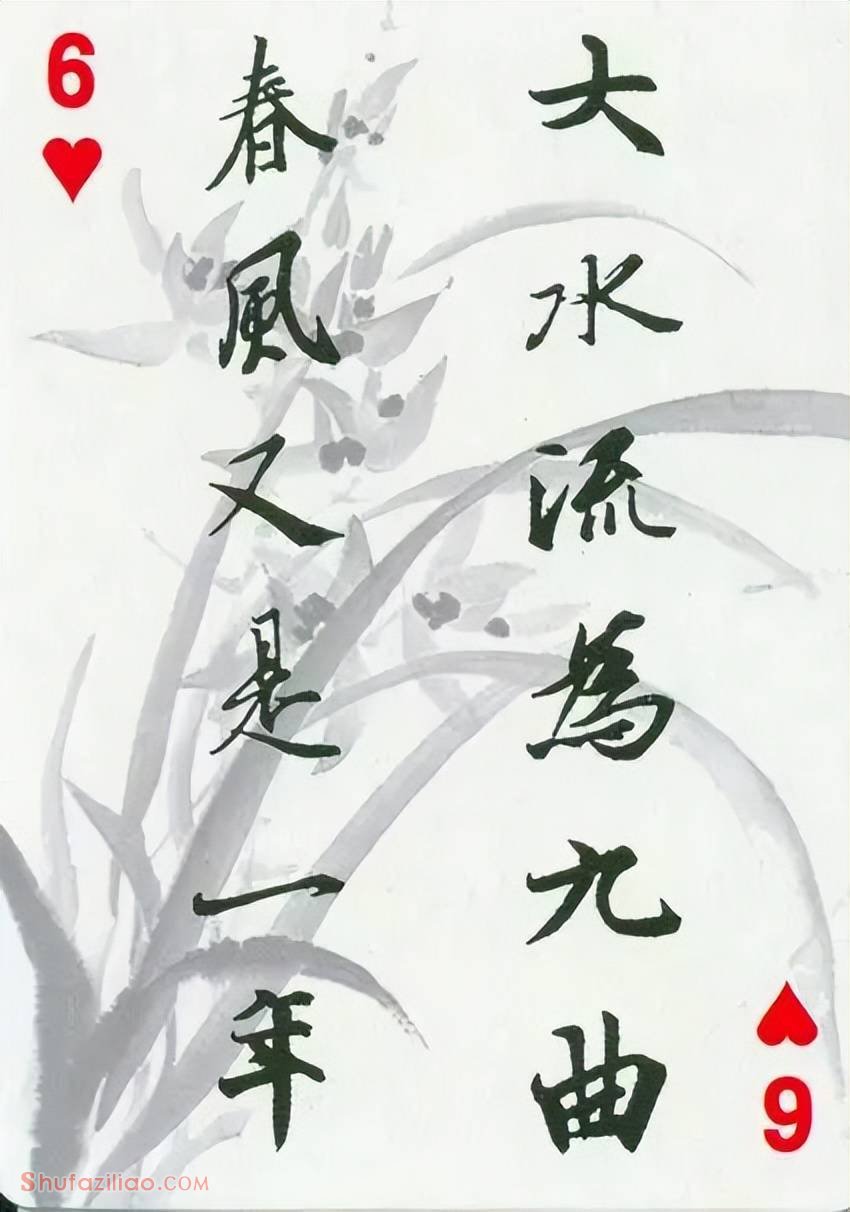 6
大水流為九曲
春風又是一年
6
Shufaziliao.COM